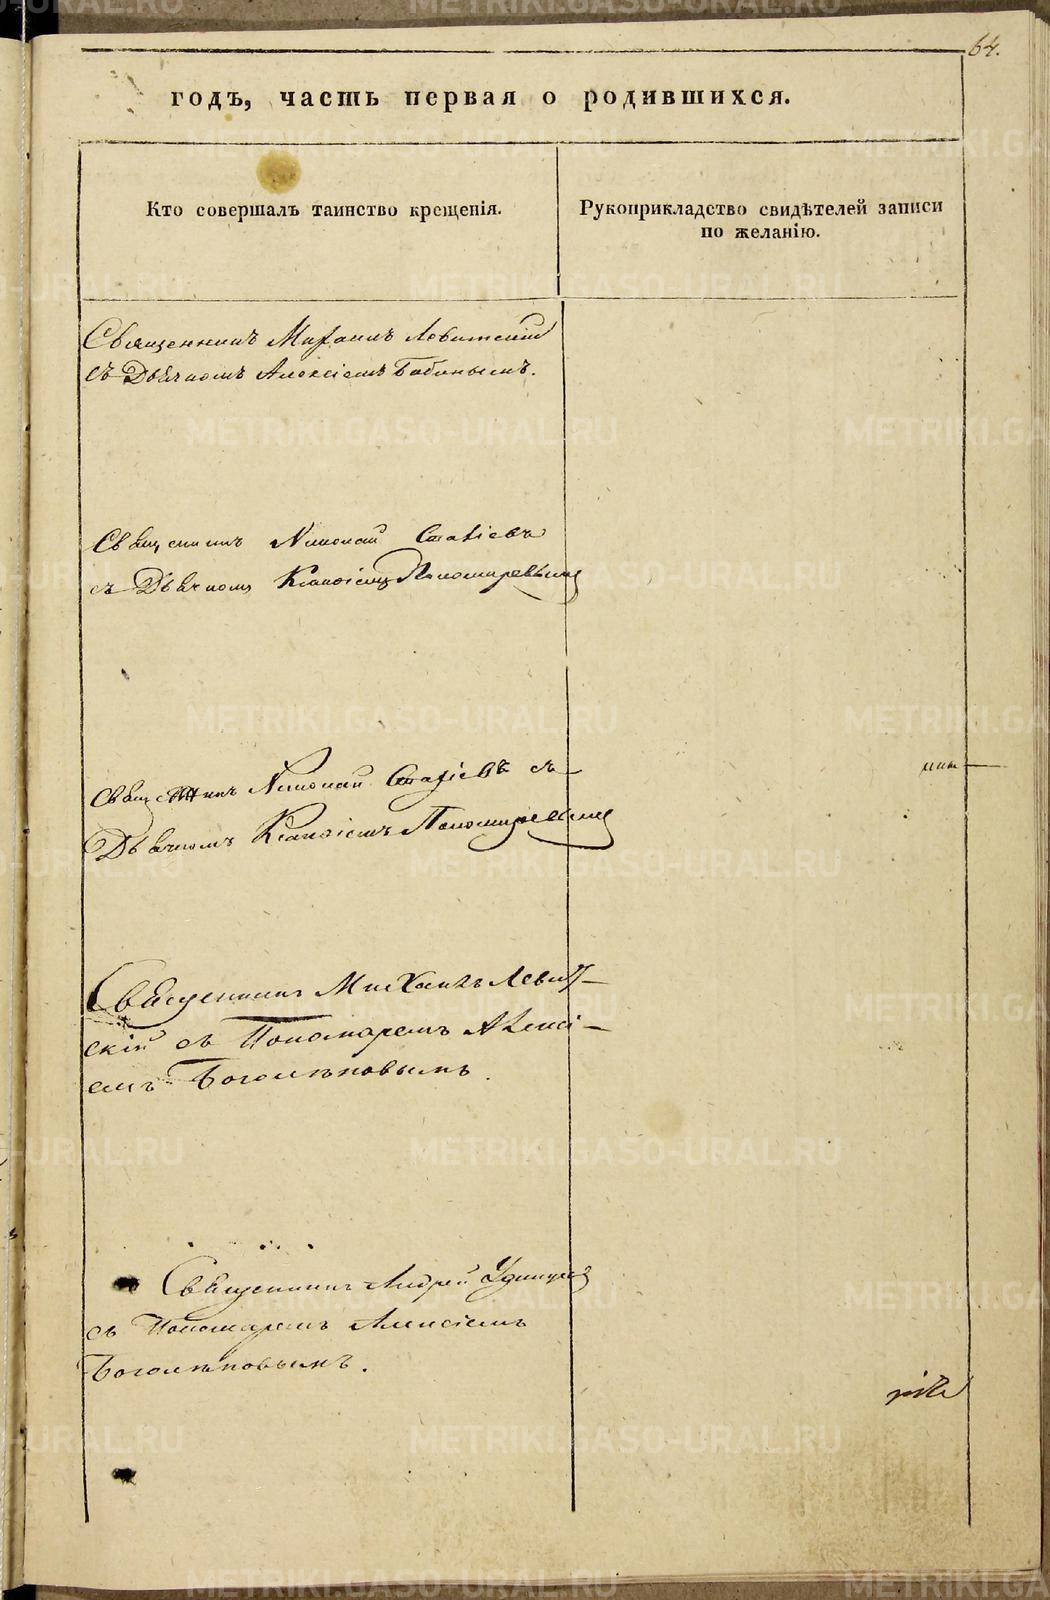 64.
годъ, часть первая о родившихся.
Кто совершалъ таинство крещенія.
Рукоприкладство свидѣтелей записи
по желанію.
Священникъ Михаилъ Левитскій
съ Дьячкомъ Алексіемъ Бабинымъ.
Священникъ Николай Стахіевъ
съ Дьячкомъ Пономаревымъ
Священникъ Николай Стахіевъ съ
Дьячкомъ Пономаревымъ
Священникъ Михаилъ Левит-
скій съ Пономаремъ Алексі-
емъ Боголѣповымъ.
Священникъ Андрей Удинцевъ
съ Пономаремъ Алексіемъ
Боголѣповымъ.
METRIKI.GASO-URAL.RU